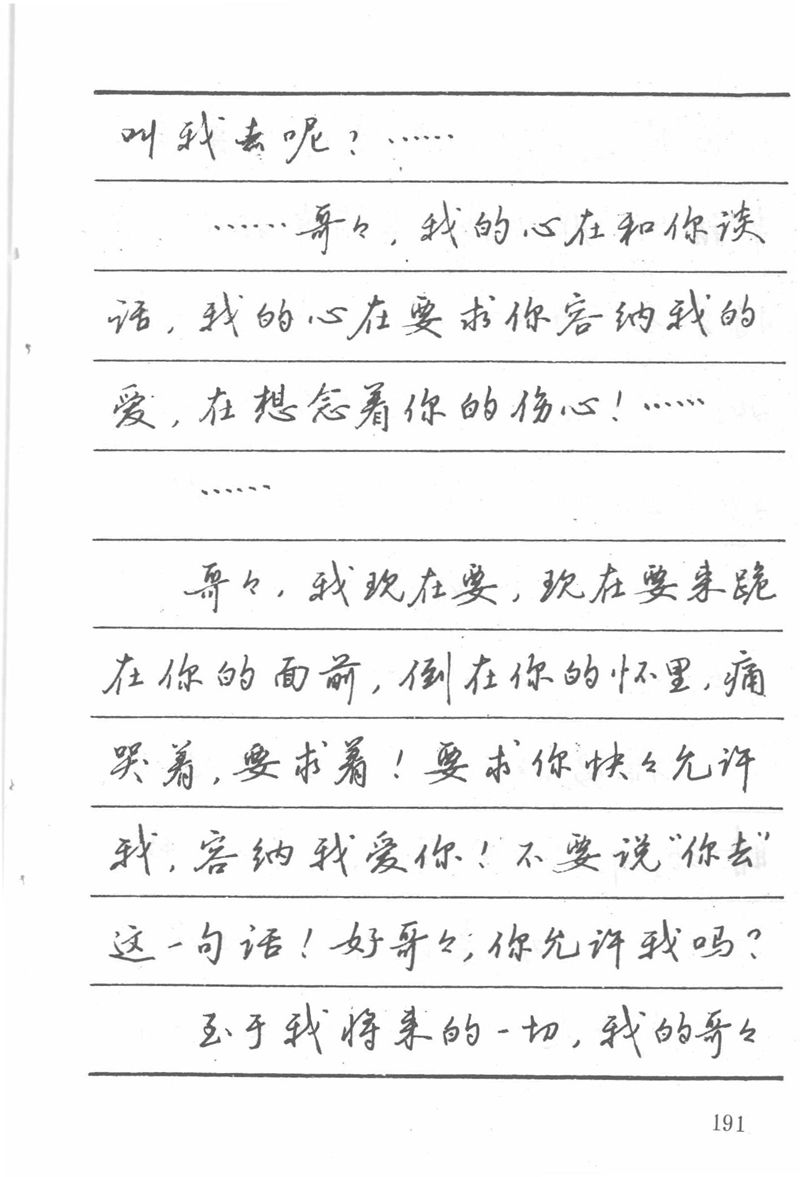 叫我去呢？……
……哥々，我的心在和你谈
话，我的心在要求你容纳我的
爱，在想念着你的伤心！……
……
哥々，我现在要，现在要来跪
在你的面前，倒在你的怀里，痛
哭着，要求着！要求你快々允许
我，容纳我爱你！不要说“你去”
这一句话！好哥々，你允许我吗？
至于我将来的一切，我的哥々
191